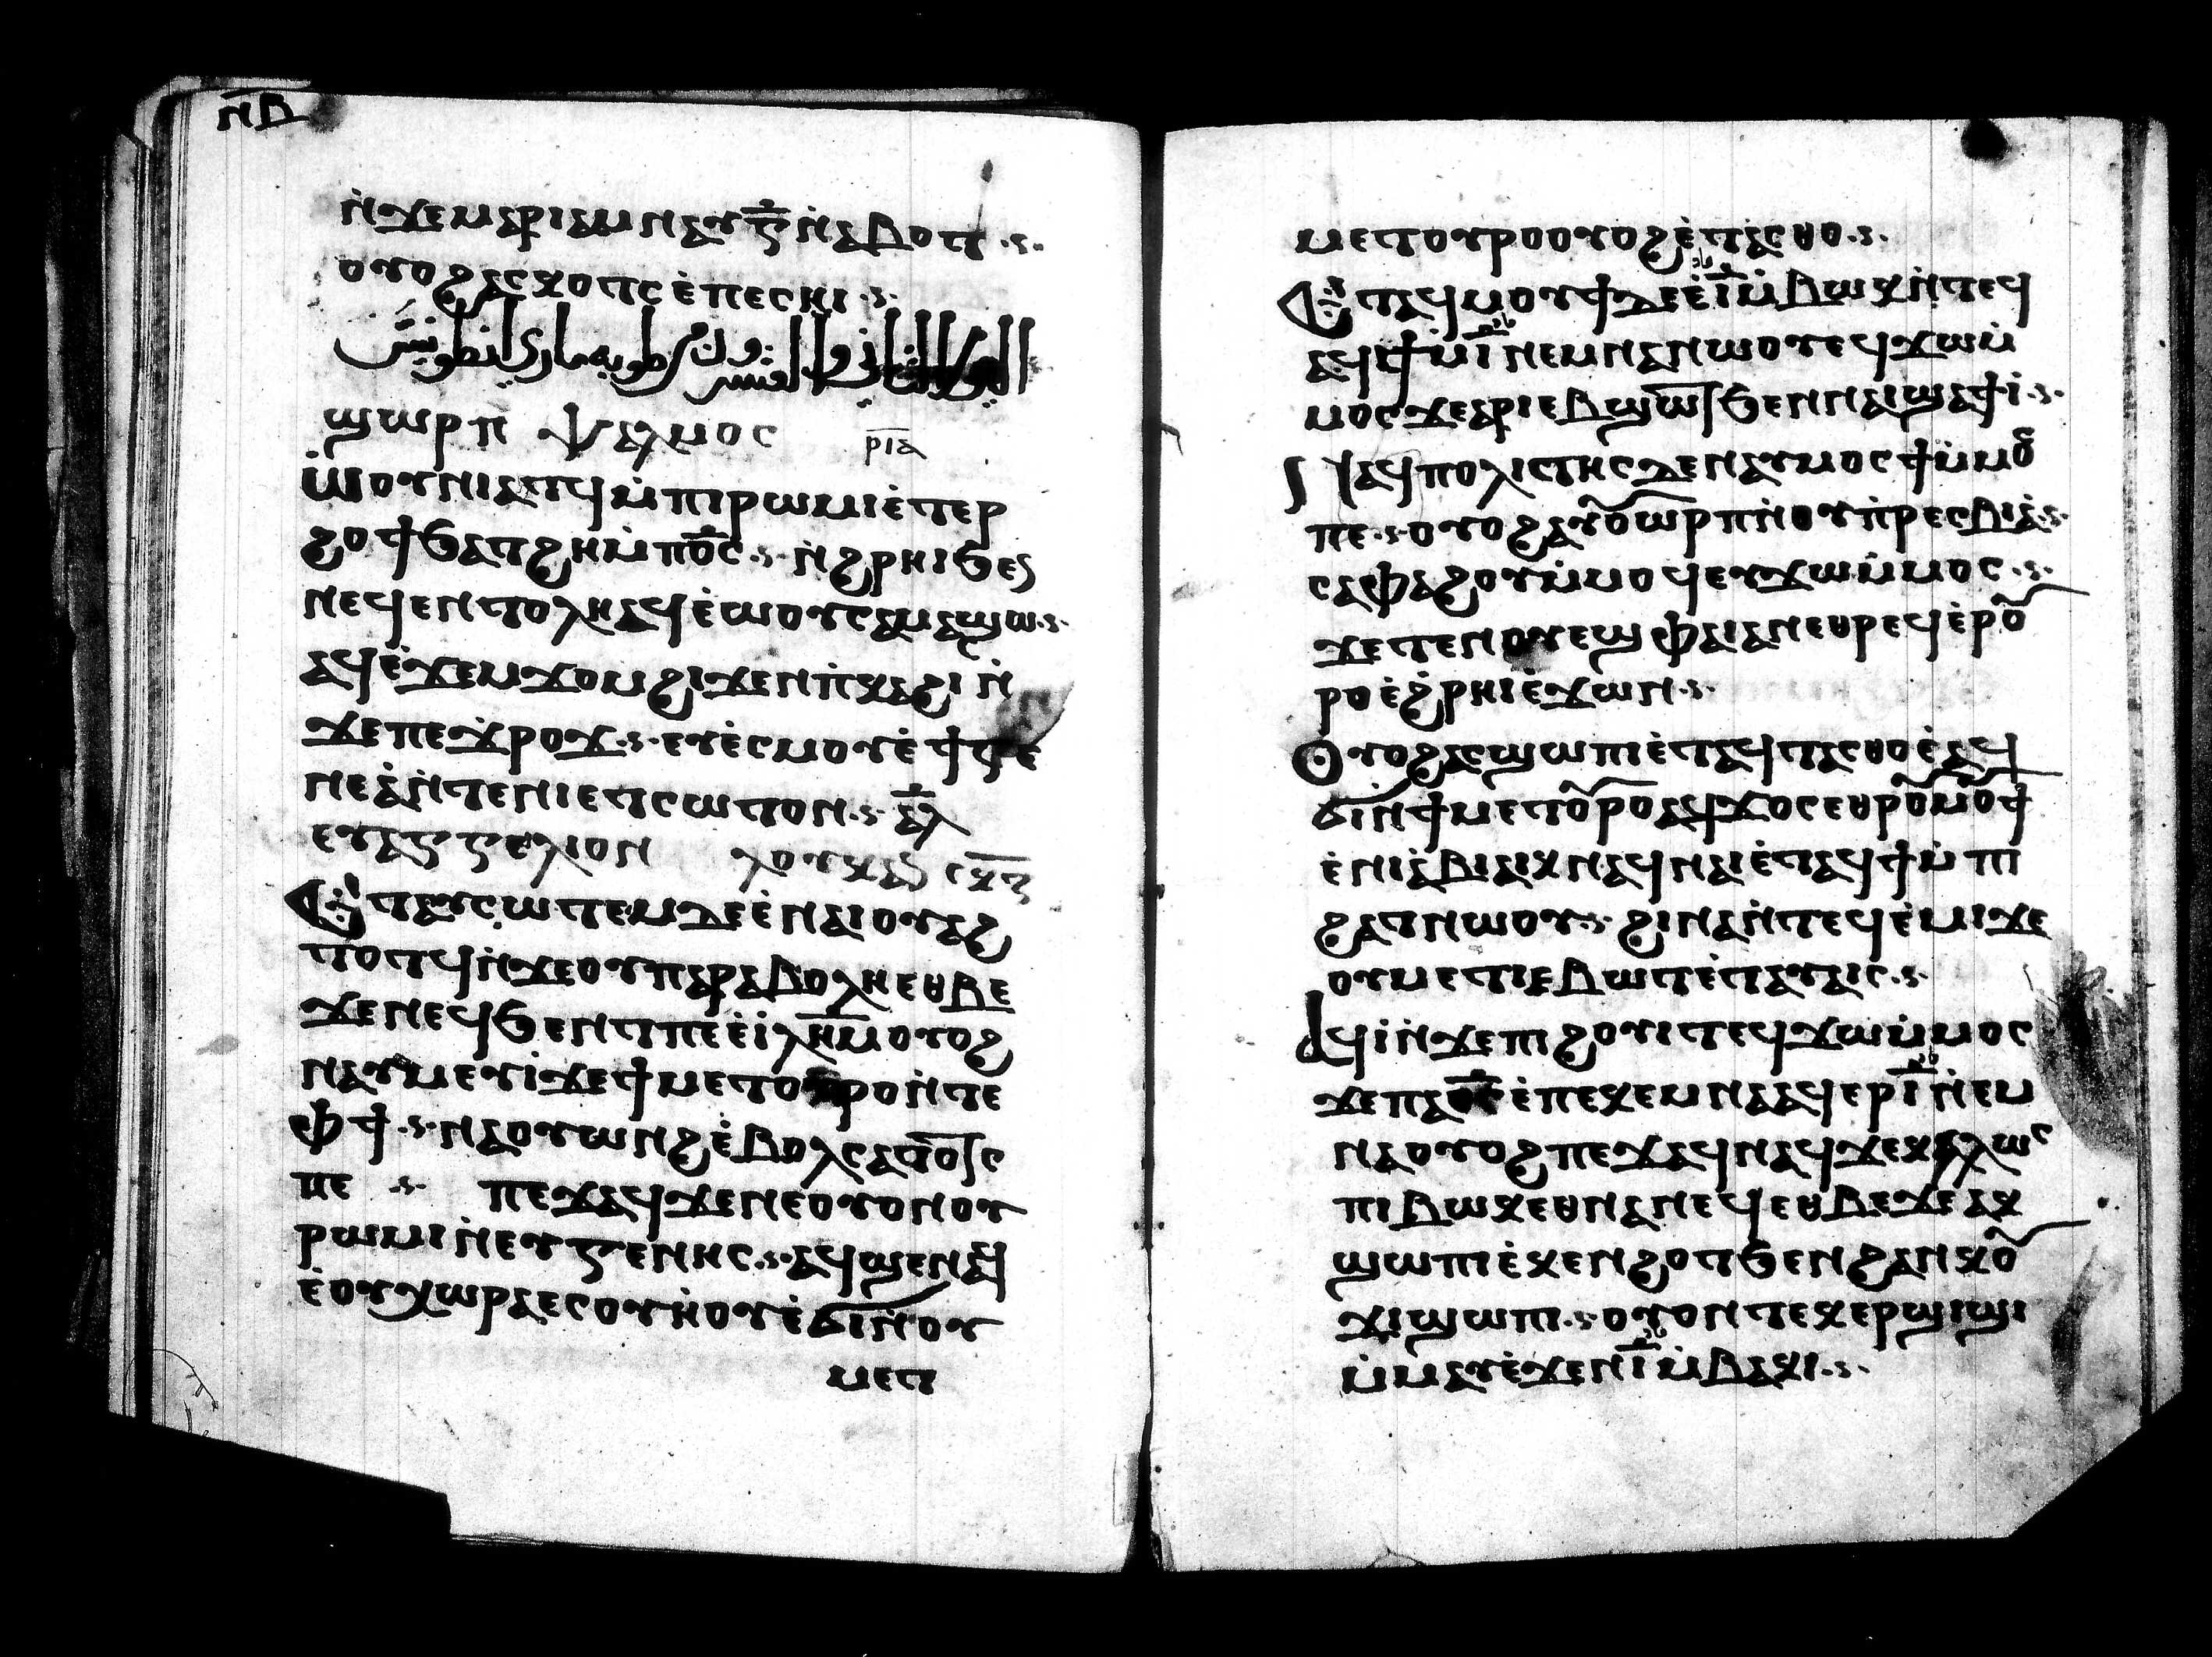 ⲛ̅ⲃ̅
ⲛ̀ϫⲉⲙⲁⲣⲓⲁⲙⲛⲁⲩⲅ̅ⲛ̀ⲁⲃⲟⲧ ·ⲋ·
ⲟⲩⲟϩⲁⲥⲕⲟⲧⲥ ⲉ̀ⲡⲉⲥⲏⲓ ·ⲋ·
طوبه ماري انطونيوس
ϣⲱⲣⲡ ⲯⲁⲗⲙⲟⲥ ⲣ̅ⲓ̅ⲁ̅
ⲱ̀ⲟⲩⲛⲓⲁⲧϥⲙ̀ⲡⲓⲣⲱⲙⲓⲉ̀ⲧⲉⲣ
ϩⲟϯϧⲁⲧϩⲏⲙ̀ⲡⲟ̅ⲥ̅ ·ⲋ· ⲛ̀ϩⲣⲏⲓϧⲉⲛ
ⲛⲉϥⲉⲛⲧⲟⲗⲏⲁϥⲉ̀ⲱⲟⲩⲥⲁⲙⲁϣⲱ ·ⲋ·
ⲁϥⲉ̀ϫⲉⲙϫⲟⲙϩⲓϫⲉⲛⲡ̀ⲕⲁϩⲓ ⲛ̀
ϫⲉⲡⲉϫ̀ⲣⲟϫ ·ⲋ· ⲉⲩⲉ̀ⲥⲙⲟⲩⲉ̀ϯⲅⲉ
ⲛⲉⲁ̀ⲛ̀ⲧⲉⲛⲓⲉⲧⲥⲱⲧⲟⲛ ·ⲋ· ⲁ̅ⲗ̅
ⲉⲩⲁⲅⲅⲉⲗⲓⲟⲛ ⲗⲟⲩⲕⲁⲛ
ⲉⲧⲁⲩⲥⲱⲧⲉⲙⲇⲉⲉ̀ⲛⲁⲓⲟⲩⲁϩ
ⲧⲟⲧϥⲛ̀ϫⲉⲟⲩⲡⲁⲣⲁⲃⲟⲗⲏⲉⲑⲃⲉ
ϫⲉⲛⲉϥϧⲉⲛⲧⲡⲉⲉ̀ⲓ̀ⲗ̅ⲏ̅ⲙ̅ⲟⲩⲟϩ
ⲛⲁⲩⲙⲉⲩⲓ̀ϫⲉϯⲙⲉⲧⲟⲩⲣⲟⲛ̀ⲧⲉ
ⲫϯ ·ⲋ· ⲛⲁⲟⲩⲱⲛϩⲉ̀ⲃⲟⲗⲥⲁⲧⲟⲧⲥ
ⲡⲉ ·ⲋ· ⲡⲉϫⲁϥϫⲉⲛⲉⲟⲩⲟⲛⲟⲩ
ⲣⲱⲙⲓⲛ̀ⲉⲩⲅⲉⲛⲏⲥ ·ⲋ· ⲁϥϣⲉⲛⲁϥ
ⲉ̀ⲟⲩⲭⲱⲣⲁⲉⲥⲟⲩⲏ̀ⲟⲩⲉ̀ϭⲓⲛ̀ⲟⲩ
ⲙⲉⲧ
ⲙⲉⲧⲟⲩⲣⲟⲟⲩⲟϩⲉ̀ⲧⲁⲥⲑⲟ ·ⲋ·
ⲉⲧⲁϥⲙⲟⲩϯⲇⲉⲉ̀ⲓ̅ⲙ̀ⲃⲱⲕⲛ̀ⲧⲉϥ
ⲁϥϯⲙ̀ⲓ̅ⲛⲉⲙⲛⲁⲛⲱⲟⲩⲉϥϫⲱⲙ̀
ⲙⲟⲥϫⲉⲁⲣⲓⲉⲃϣⲱⲧϧⲉⲛⲛⲁⲓϣⲁϯⲓ̀ ·ⲋ·
ⲛⲁϥⲡⲟⲗⲓⲥⲧⲏⲥⲇⲉⲛⲁⲩⲙⲟⲥϯⲙ̀ⲙⲟ
ⲡⲉ ·ⲋ· ⲟⲩⲟϩⲁⲩⲟⲩⲱⲣⲡⲛ̀ⲟⲩⲡ̀ⲣⲉⲥⲃⲓⲁ ·ⲋ·
ⲥⲁⲫⲁϩⲟⲩⲙ̀ⲙⲟϥⲉⲩϫⲱⲙ̀ⲙⲟⲥ ·ⲋ·
ϫⲉⲧⲉⲛⲟⲩⲉϣⲫⲁⲓⲁⲛⲉⲑⲣⲉϥⲉ̀ⲣⲟⲩ
ⲣⲟⲉ̀ϩ̀ⲣⲏⲓⲉ̀ϫⲱⲛ ·ⲋ·
ⲟⲩⲟϩⲁⲥϣⲱⲡⲓⲉ̀ⲧⲁϥⲧⲁⲥⲑⲟⲉ̀ⲁϥ
ϭⲓⲛ̀ϯⲙⲉⲧⲟⲩⲣⲟⲁϥϫⲟⲥⲉⲑⲣⲟⲩⲙⲟⲩϯ
ⲉ̀ⲛⲓⲉ̀ⲃⲓⲁⲓⲕⲛⲁϥⲛⲁⲓⲉ̀ⲧⲁϥϯⲙ̀ⲡⲓ
ϩⲁⲧⲛⲱⲟⲩ ·ⲋ· ϩⲓⲛⲁⲛ̀ⲧⲉϥⲉ̀ⲙⲓϫⲉ
ⲟⲩⲙⲉⲧⲓⲉⲃⲱⲧⲉ̀ⲧⲁⲩⲁⲓⲥ ·ⲋ·
ⲁϥⲓ̀ⲛ̀ϫⲉⲡⲓϩⲟⲩⲓⲧⲉϥϫⲱⲙ̀ⲙⲟⲥ
ϫⲉⲡⲁⲟ̅ⲥ̅ⲉ̀ⲡⲉⲕⲉⲙⲛⲁⲁϥⲉⲣⲓ̅ⲛ̀ⲉⲙ
ⲛⲁⲟⲩⲟϩⲡⲉϫⲁϥⲛⲁϥϫⲉⲕⲁⲗⲱⲥ
ⲡⲓⲃⲱⲕⲉⲑⲛⲁⲛⲉϥⲉⲑⲃⲉϫⲉⲁⲕ
ϣⲱⲡⲓⲉ̀ⲕⲉⲛϩⲟⲧϧⲉⲛϩⲁⲛⲕⲟⲩ
ϫⲓϣⲱⲡⲓ ·ⲋ· ⲟⲩⲟⲛⲧⲉⲕⲉⲣϣⲓϣⲓ
ⲙ̀ⲙⲁⲩⲉ̀ϫⲉⲛⲓ̅ⲙ̀ⲃⲁⲕⲓ ·ⲋ·